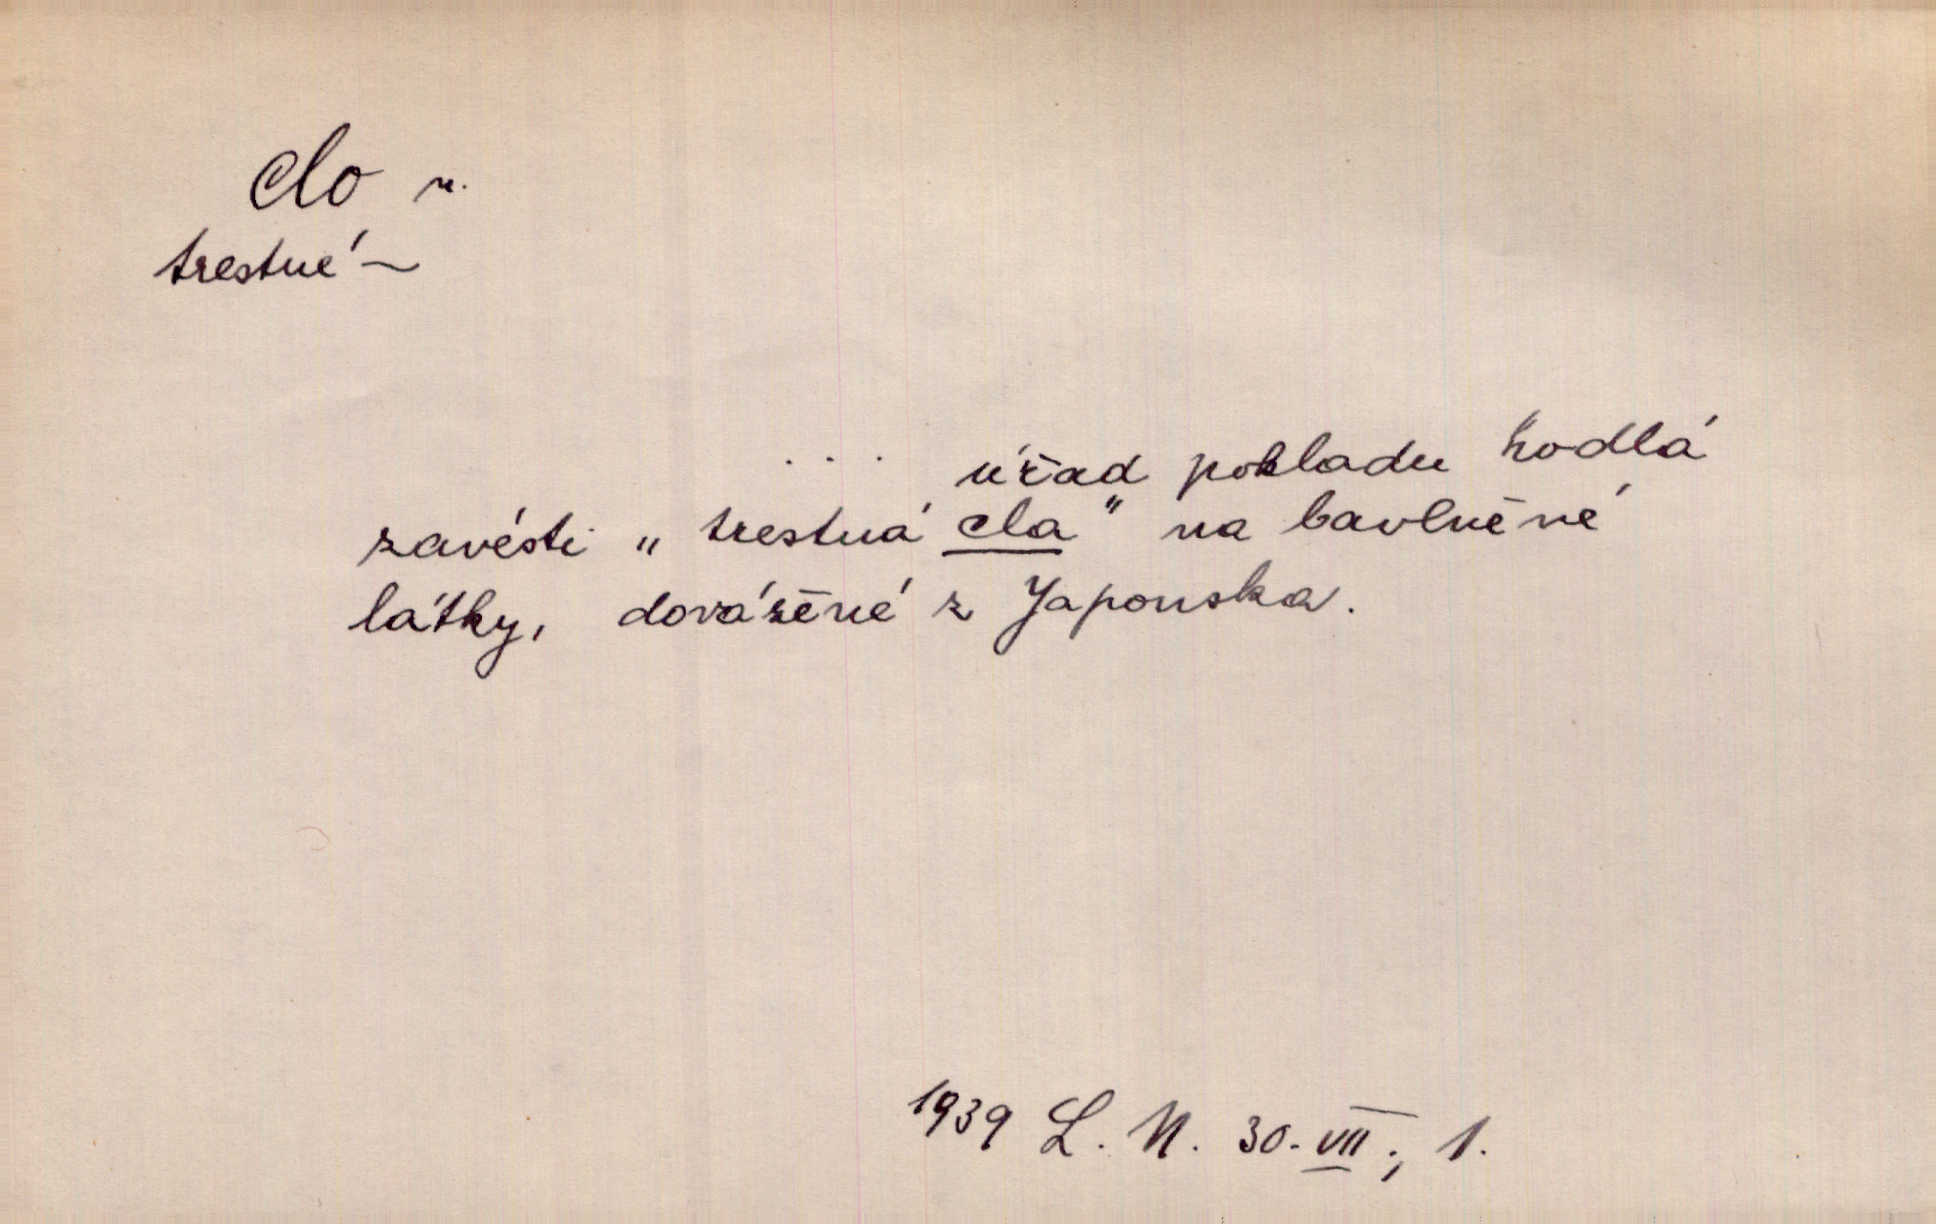 clo n.
trestné ~
... úřad pokladu hodlá
zavésti „trestná cla" na bavlněné
látky, dovážené z Japonska.
1939 L. N. 30. VII.; 1.